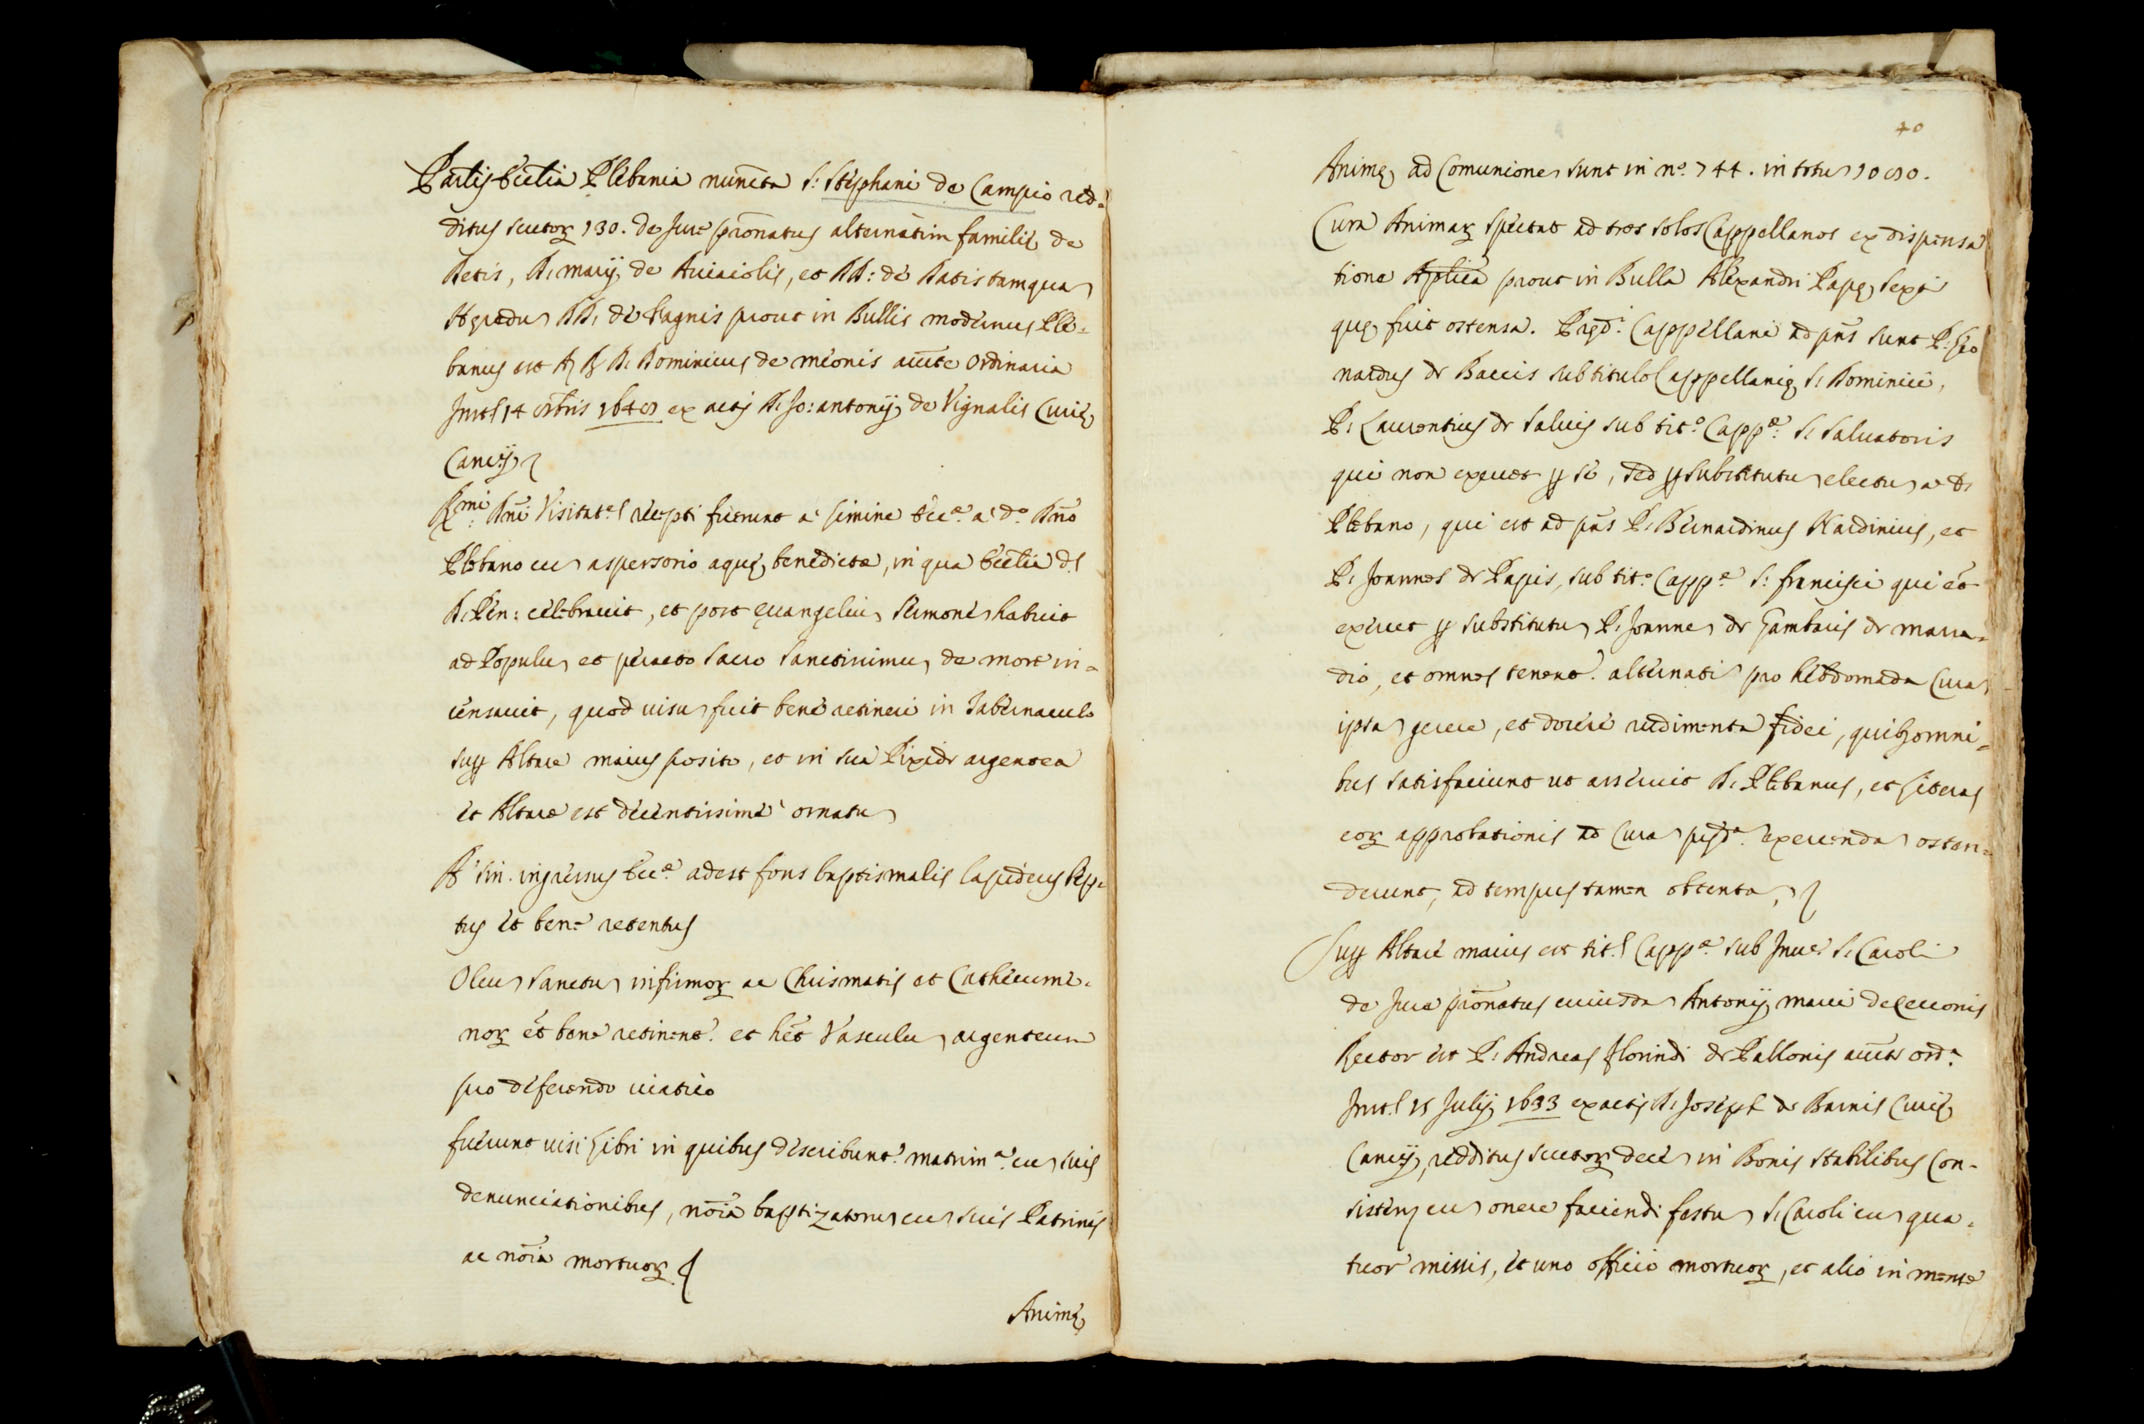 Eccl̃ia Plebania nuncta S: Stephani de Campio red-
ditus scutoꝝ 130. de Jure pr̃onatus alternatim familię de
Betis, D. de et DD: de Batis tamqua
DD. de Magnis prout in Bullis modernus Ple-
banus est D. Dominicus de auct̃e Ordinaria
14 8bris ex actis D. Jo: antonij de Vignalis Curię
Canc.ij
Rmi Dn̄i Visitat.s recepti fuerunt a limine Ecc.ę a d.o Dn̄o
Plebano cu aspersorio aquę benedictæ, in qua Eccl̃ia d.s
D. celebravit, et post euangeliu sermone habuit
ad Populu et peracto sacro sanctissimu de more in-
censavit, quod visu fuit bene retineri in Tabernaculo
sup Altare maius posito, et in sua Pixide argentea
et Altare est decentissime ornatu
A sin. ingressus Ecc.ę adest fons baptismalis lapideus sep-
tus et bene retentus
Oleu sanctu infirmoꝝ ac Chrismatis et Cathecume-
noꝝ et̃ bene retinent.r et het̃ Vasculu argenteum
pro deferendo viatico
fuerunt visi Libri in quibus describunt.r matrim.a cu suis
denunciationibus, noĩa baptizatoru cu suis Patrinis
ac noĩa mortuoꝝ
Animę
40
Animę ad Comunione sunt in n.o 744. in totu
Cura Animaꝝ spectat ad tres solos Cappellanos ex dispensa
tione Aplica prout in Bulla Alexandri Papę sexti
quę fuit ostensa. Prędi Cappellani ad pñs sunt P. Leo
nardus de Baccis sub titulo Cappellanię S. Dominici,
P. Laurentius de Saluis sub tit.o Capp.ę S. Saluatoris
qui non exercet ꝑ se, sed ꝑ substitutu electu a D.
Plebano, qui est ad pñs P. Bernardinus Nardinius, et
P. Joannes de Papis, sub tit.o Capp.ę S. francisci qui et̃
exercet ꝑ substitutu P. Joanne de Gambaris de marra-
dio, et omnes tenent.r alternati pro hebdomada Cura
ipsa gerere, et docere rudimenta fidei, quibꝫ omni-
bus satisfaciunt ut asseruit D. Plebanus, et literas
eoꝝ approbationis ad Cura exercenda osten-
derunt, ad tempus tamen obtenta,
Sup Altare maius est tit.s Capp.ę sub Inue S. Caroli
de Jure pr̃onatus cuiusda Antonij marci
Rector est P. Andreas florindi de Pallonis auct̃e ord.a
15 Julij 1633 ex actis D. Joseph de Barnis Curię
Canc.ij, redditus scutoꝝ dece in Bonis stabilibus Con-
sisten cu onere faciendi festu S. Caroli cu qua-
tuor missis, et uno officio mortuoꝝ, et alio in mense